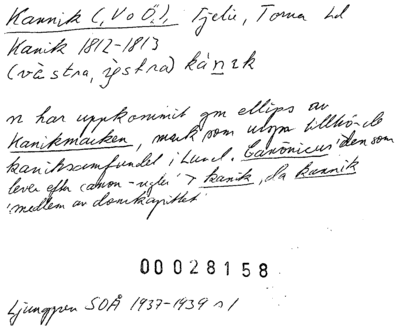 Kannik (, V o Ö.), Fjelie, Torna hd
Kanik 1812-1813
(västra, östra) kánιk
n har uppkommit gm ellips av
Kanikmarken, mark som utgör tillhörde
kaniksamfundet i Lund. Canōnicus 'den som
lever efter canon-regler' > kanik, da kannik
'medlem av domkapitlet'
00028158
Ljunggren SOÅ 1937-1939 s 1